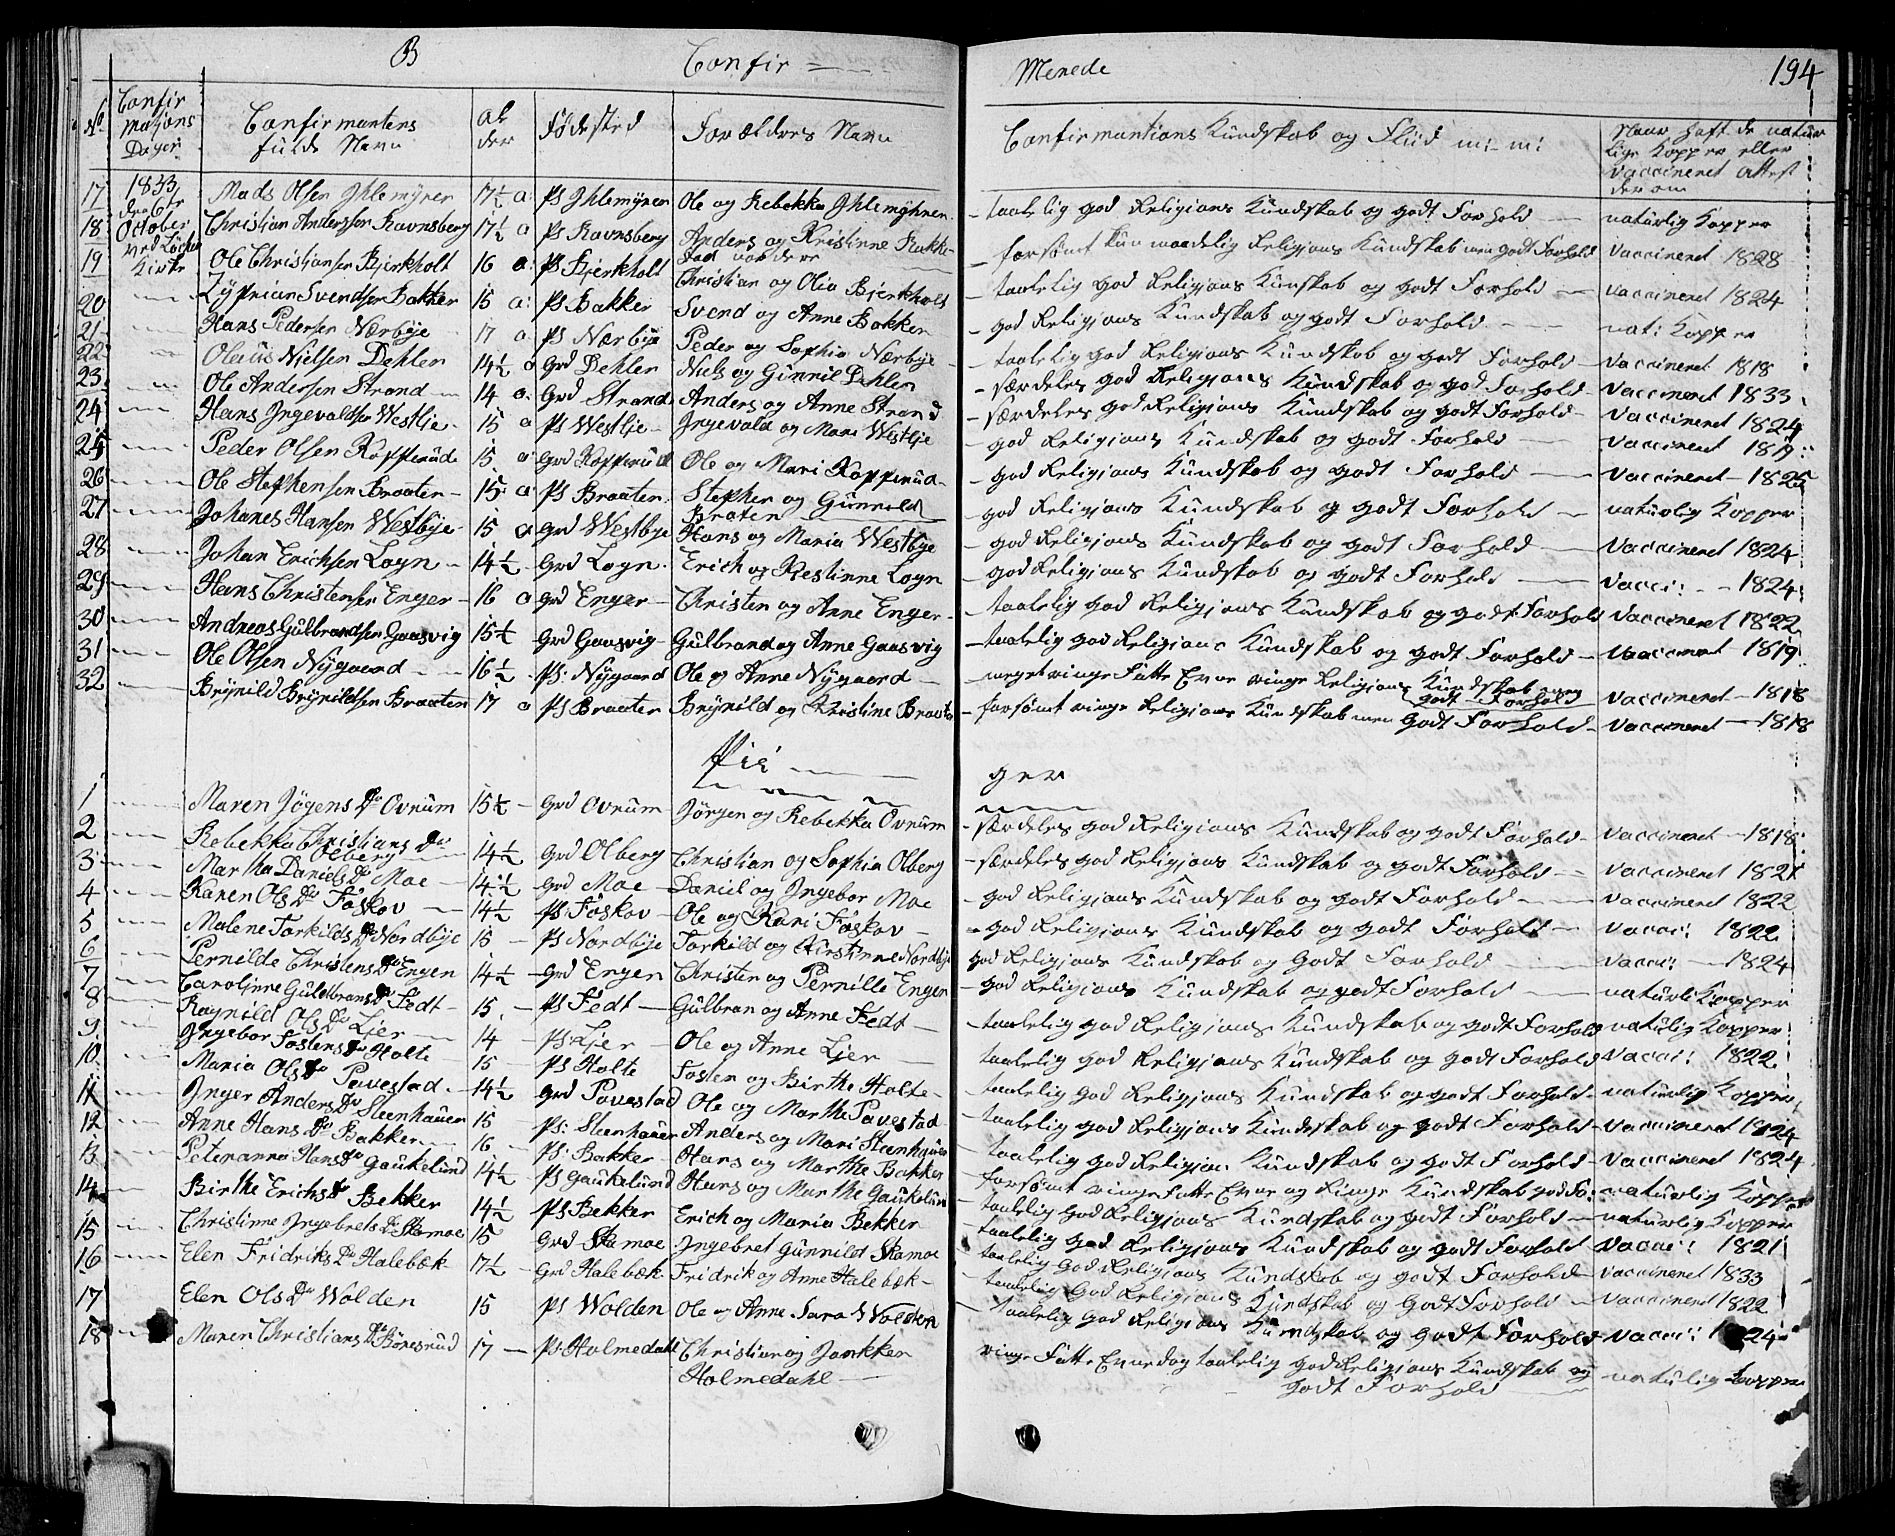 B Confir = Menede 194
No Confirmations Dager Confirmantens fulde Navn Alder Fødested Forældres Navn Confirmantians Kundskab og Fliid m: m: Naar haft de naturlige Kopper eller Vaccineret Attest derom
17 1833 den 6te October ved Kirke Mads Olsen Ihlemyren 17½ a: Ps Ihlemyren Ole og Rebekka Ihlemyhren taalelig god Religions Kundskab og godt Forhold naturlig Kopper
18 Christian Anderssen Ravnsberg 17½ a Ps Ravnsberg Anders og Kristinne Forsømt kun maadelig Religjons Kundskab men godt Forhold Vaccineret 1828
19 Ole Christiansen Bjerkholt 16 a: Ps Bjerkholt Christian og Olia Bjerkholt taalelig god Religjons Kunskab og godt Forhold Vaccineret 1824
20 Zyprian Svendsen Bakker 15 a: Ps Bakker Svend og Anne Bakker god Religjons Kundskab og godt Forhold nat: Kopper
21 Hans Pedersen Nærbye 17 a Ps Nærbye Peder og Sophia Nærbye taalelig god Religjons Kundskab og godt Forhold Vaccineret 1818
22 Oleüs Nielsen Dehlen 14½ a Grd Dehlen Niels og Günnil Dehlen særdeles god Religjons Kundskab og god Forhold Vaccineret 1833
23 Ole Andersen Strand 14 a: Grd Strand Anders og Anne Strand særdeles god Religjons Kundskab og godt Forhold Vaccineret 1824
24 Hans Ingevaldsen Westlje 15 a Ps Westlje Ingevald og Mari Westlje god Religjons Kundskab og godt Forhold Vaccineret 1819
25 Peder Olsen Kopperüd 15 a Grd Kopperüd Ole og Mari Kopperüd god Religjons Kundskab og godt Forhold Vaccineret 1825
26 Ole Stephensen Braaten 15 a: Ps Braaten Stephen og Günnild Braten god Religjons Kundskab og godt Forhold naturlig Kopper
27 Johanes Hansen Westbye 15 a Grd Westbye Hans og Maria Westbye god Religjons Kundskab og godt Forhold Vaccineret 1824
28 Johan Erichsen Logn 14½ Grd Logn Erich og Kestinne Logn god Religjons Kundskab og godt Forhold Vacci: 1824
29 Hans Christensen Enger 16 a Grd Enger Christen og Anne Enger taalelig god Religjons Kundskab og godt Forhold Vaccineret 1822
30 Andreas Gülbrandsen Gaasvig 15½ Grd Gaasvig Gülbrand og Anne Gaasvig taalelig god Religjons Kundskab og godt Forhold Vaccineret 1819
31 Ole Olsen Nygaard 16½ Ps: Nygaard Ole og Anne Nygaard meget ringe Fatte Evne ringe Religjons Kundskab og godt Forhold Vaccineret 1818
32 Brynild Brynildsen Braaten 17 a Ps Braaten Brynild og Kristine Braaten forsømt ringe Religions Kundskab men godt Forhold Vaccineret 1818
Pie ger
1 Maren Jøgens Do Ovrüm 15½ Grd Ovrüm Jørgen og Rebekka Ovrüm særdeles god Religions Kundskab og godt Forhold Vaccineret 1818
2 Rebekka Christians Do Olberg 14½ Grd Olberg Christian og Sophia Olberg særdeles god Religjons Kundskab og godt Forhold Vaccineret 1821
3 Martha Daniels Do Moe 14½ Grd Moe Daniel og Ingebor Moe god Religjons Kundskab og godt Forhold Vaccineret 1822
4 Karen Ols Do Foskov 14½ Ps Foskov Ole og Kari Foskov god Religjons Kundskab og godt Forhold Vacci: 1822
5 Malene Torkilds Do Nordbye 15 Ps Nordbye Torkild og Kirstinne Nordbye god Religjons Kundskab og Godt Forhold Vacci: 1824
6 Pernilde Christens Do Engen 14½ Grd Engen Christen og Pernille Engen god Religjons Kundskab og godt Forhold naturli Kopper
7 Carolinne Güldbrans Do Fedt 15 Ps Fedt Gülbran og Anne Fedt taalelig god Religjons Kundskab og godt Forhold natürlig Kopper
8 Ragnild Ols Do Ljer 14 Ps: Ljer Ole og Anne Ljer taalelig god Religjons Kundskab og godt Forhold Vacci: 1822
9 Ingebor Fostens Do Holte 15 Ps Holte Fosten og Birthe Holte taalelig god Religjons Kundskab og godt Forhold naturlig Kopper
10 Maria Ols Do Povestad 14½ Grd Povestad Ole og Marthe Povestad taalelig god Religjons Kundskab og godt Forhold Vaccineret 1824
11 Inger Anders Do Steenhauen 15 Ps: Steenhauen Anders og Mari Steenhauen taalelig god Religjon Kundskab og godt Forhold Vaccineret 1824
12 Anne Hans Do Bakken 16 Ps: Bakker Hans og Marthe Bakker forsømt ringe Fatte Evne og Ringe Kundskab god Fo: naturlig Kopper
13 Peternanna Hans Do Gaukelund 14½ Ps Gaukelund Hans og Marthe Gaukelund taalelig god Religjons Kundskab og godt Forhold naturlig Kopper
14 Birthe Erichs Do Bekker 14½ Ps Bekker Erich og Maria Bekker taalelig god Religjons Kundskab og godt Forhold Vacci: 1821
15 Christinne Ingebrets Do Skamoe 15 Grd Skamoe Ingebret Günnild Skamoe taalelig god Religjons Kundskab og godt Forhold Vaccineret 1833
16 Elen Fridriks Do Halebæk 17½ Grd Halebæk Fridrik og Anne Halebæk taalelig God Religjons Kundskab og Godt Forhold Vaccineret 1822
17 Elen Ols Do Wolden 15 Ps Wolden Ole og Anne Sara Wolden taalelig god Religjons Kundskab og godt Forhold Vacci: 1824
18 Maren Christians Do Børesrud 17 Ps: Holmedahl Christian og Jankken Holmedahl ringe Fatte Evne dog taalelig god Religjons Kundskab og godt Forhold natürlig Kopper